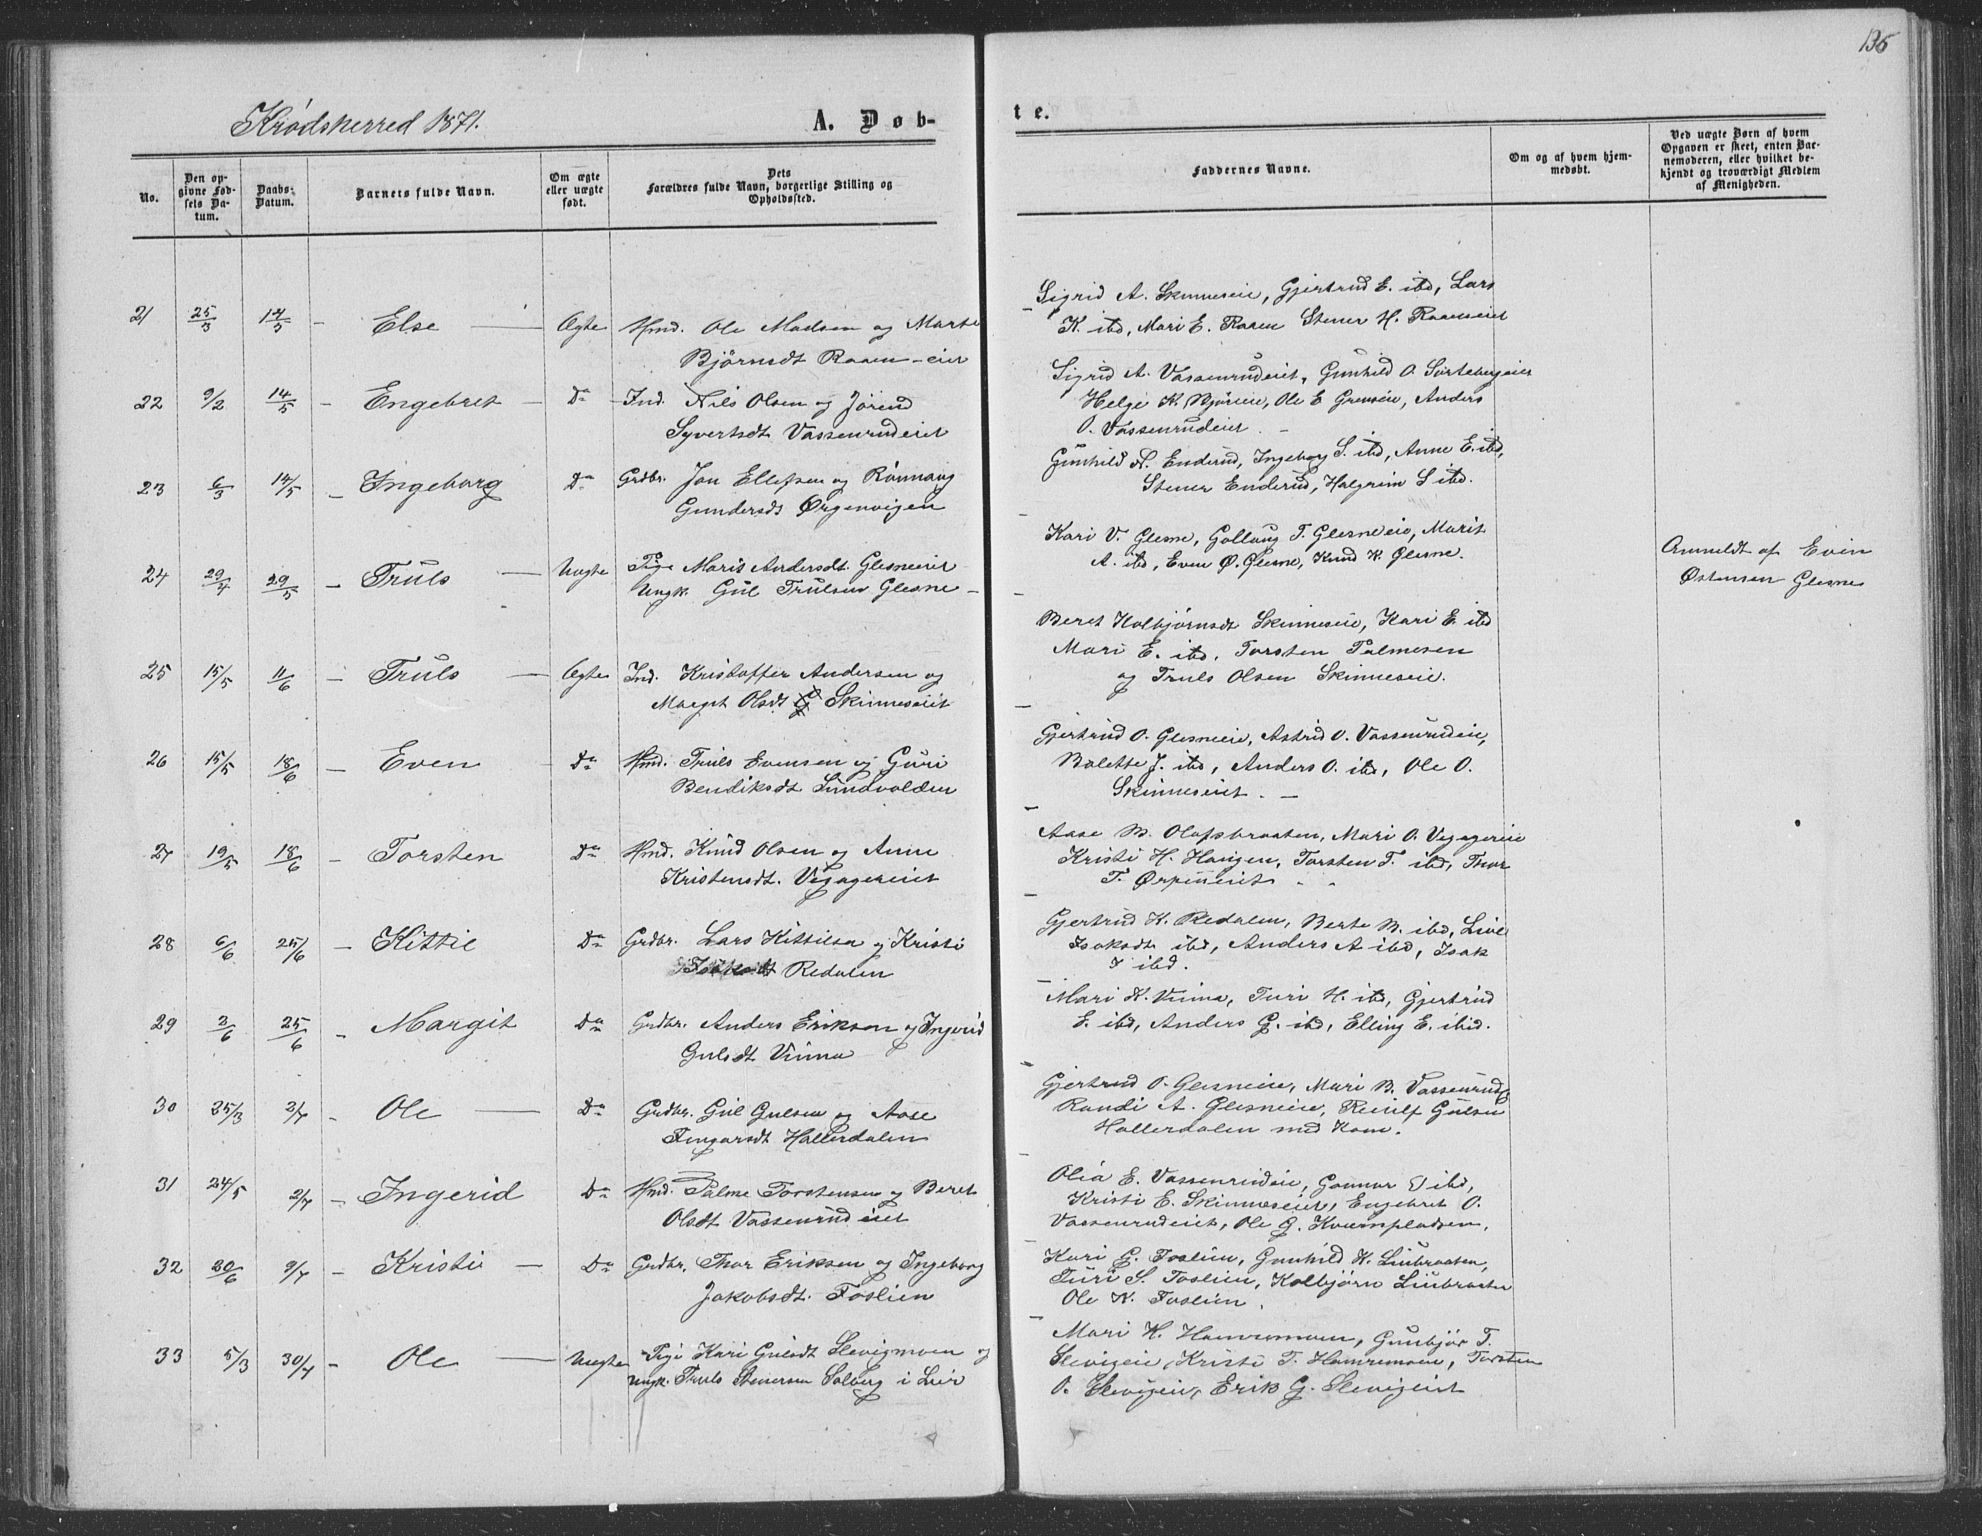 135
Krødsherred 1871.
A. Døb-
te.
No.
Den op-
givne Fød-
sels Da-
tum.
Daabs-
Datum.
Barnets fulde Navn.
Om ægte
eller uægte
født.
Dets
Forældres fulde Navn, borgerlige Stilling og
Opholdssted.
Faddernes Navne.
Om og af hvem hjem-
medøbt.
Ved uægte Børn af hvem
Opgaven er skeet, enten Bar-
nemoderen, eller hvilket be-
kjendt og troværdigt Medlem
af Menigheden.
21 25/3 14/5 - Else - Ægte Hmd. Ole Madsen og Marte
Bjørnsdt Raaen-eier
Sigrid A. Skinneseie, Gjertrud E. ibd, Lars
K. ibd, Mari E. Raaen Stener H. Raaeneiet
22 9/2 14/5 - Engebret - Do Ind. Nils Olsen og Jørend
Syvertsdt Vassenrudeiet
Sigrid A. Vassenrudeiet, Gunhild O. Sortebergeier
Helge K. Bjøreie, Ole E Grenseie, Anders
O. Vassenrudeier. -
23 6/3 14/5 - Ingeborg Do Grdbr. Jon Ellefsen og Rønnaug
Gundersdt Ørgenvigen
Gunhild A. Enderud, Ingeborg S. ibd, Anne E. ibd,
Stener Enderud, Halgrim S ibd.
24 29/4 29/5 - Truls - Uægte Pige Maris Andersdt. Glesneiet
Ungk. Gul Trulsen Glesne -
Kari V. Glesne, Gollaug T. Glesneeie, Marit
A. ibd, Even Ø. Glesne, Knud K. Glesne.
Anmeldt af Even
Østensen Glesne
25 15/5 11/6 - Truls - Ægte Ind. Kristoffer Andersen og
Margit Olsdt Skinneseiet
Beret Kolbjørnsdt Skinneseie, Kari E. ibd
Mari E. ibd, Torsten Palmesen
og Truls Olsen Skinneseie.
26 15/5 18/6 - Even - Do Hmd. Truls Evensen og Guri
Bendiksdt Sundvolden
Gjertrud O. Glesneeie, Astrid O. Vassenrudeie,
Bolette J. ibd, Anders O. ibd, Ole O.
Skinneseiet. -
27 19/5 18/6 - Torsten Do Hmd. Knud Olsen og Anne
Kristensdt. Vegagereiet
Aase M. Olafsbraaten, Mari O. Vegagereie
Kristi H. Haugen, Torsten T. ibd, Thor
T. Ørpeneiet
28 6/6 25/6 - Kittil Do Grdbr. Lars Kittilsen og Kristi
Isaksdt Redalen
Gjertrud K. Redalen, Berte M. ibd, Live
Isaksdt ibd, Anders A ibd, Isak
I ibd.
29 2/6 25/6 - Margit Do Grdbr. Anders Eriksen og Ingerid
Gulsdt Vinna
Mari K. Vinna, Turi H. ibd, Gjertrud
E. ibd, Anders G. ibd, Elling E. ibid.
30 25/3 2/7 - Ole - Do Grdbr. Gul Gulsen og Aase
Ingarsdt Hallerdalen
Gjertrud O. Glesneeie, Mari B. Vassenrude
Randi A. Glesneeie, Reiulf Gulsen
Hallerdalen med Kone.
31 24/5 2/7 - Ingerid Do Hmd. Palme Torstensen og Beret
Olsdt Vassenrudeiet
Olia E. Vassenrudeie, Gunnar I ibd,
Kristi E. Skinneseiet, Engebret O.
Vassenrudeiet, Ole G. Kvernpladsen.
32 20/6 9/7 - Kristi - Do Grdbr. Thor Eriksen og Ingeborg
Jakobsdt. Foslien
Kari G. Foslien, Gunhild K. Linbraaten,
Turi S. Foslien, Kolbjørn Linbraaten
Ole N. Foslien.
33 5/3 30/7 - Ole - Uægte Pige Kari Gulsdt Slevigmoen og
Ungk. Truls Stenersen Solberg i Lier
Mari H. Hamremoen, Gunbjør T.
Slevigeie, Kristi T. Hamremoen, Torsten
O. Slevigeie, Erik G. Slevigeiet